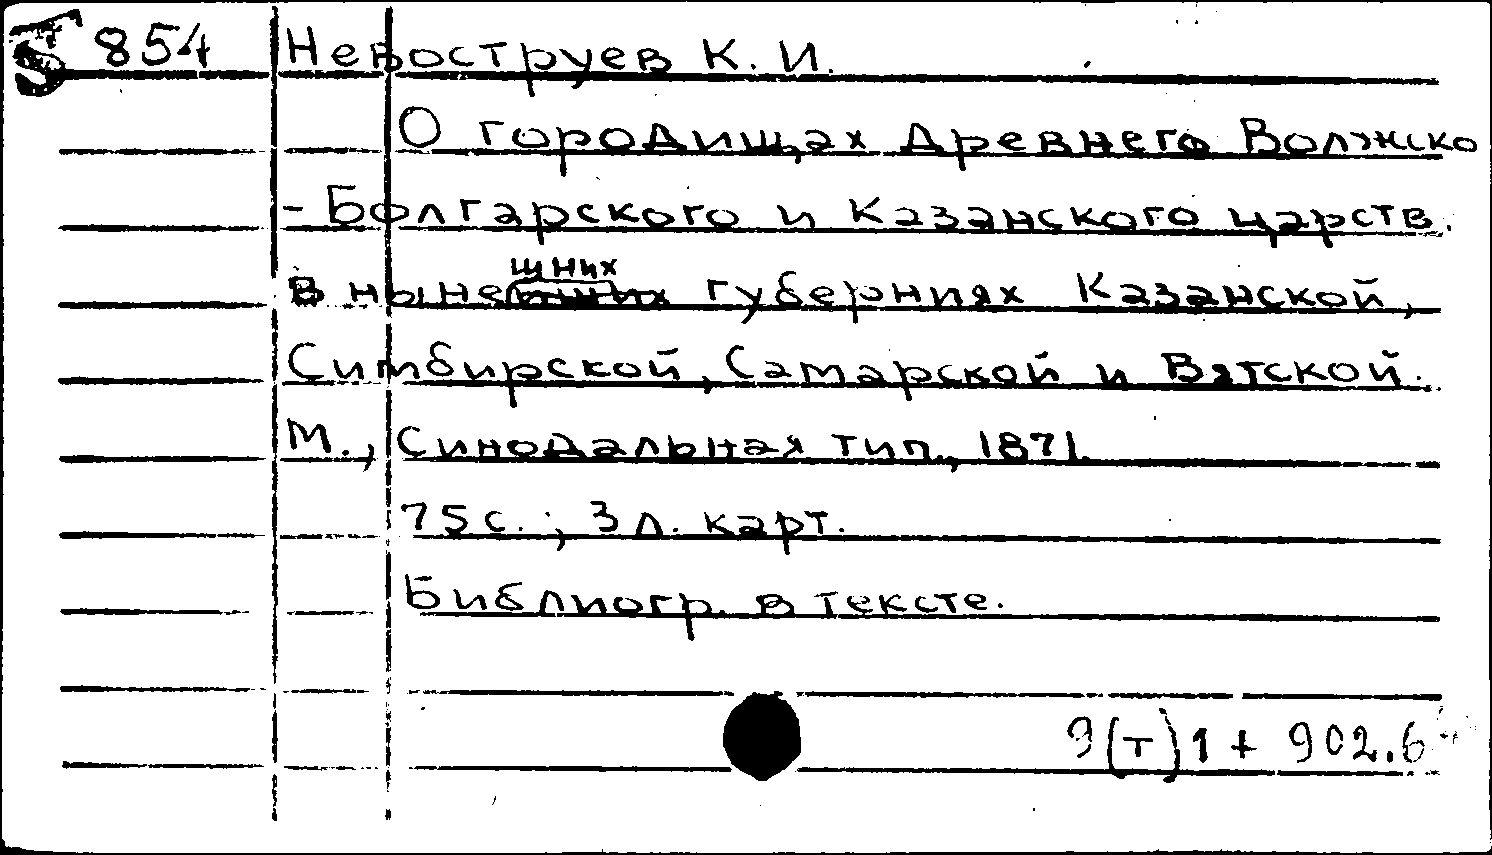 Б 854 Невоструев К. И.
О городищах древнего Волжско
- Болгарского и Казанского царств
в нынешних губерниях Казанской,
Симбирской, Самарской и Вятской.
М., Синодальная тип., 1871.
75 с.; 3 л. карт.
Библиогр. в тексте.
9(т)1 + 902.6